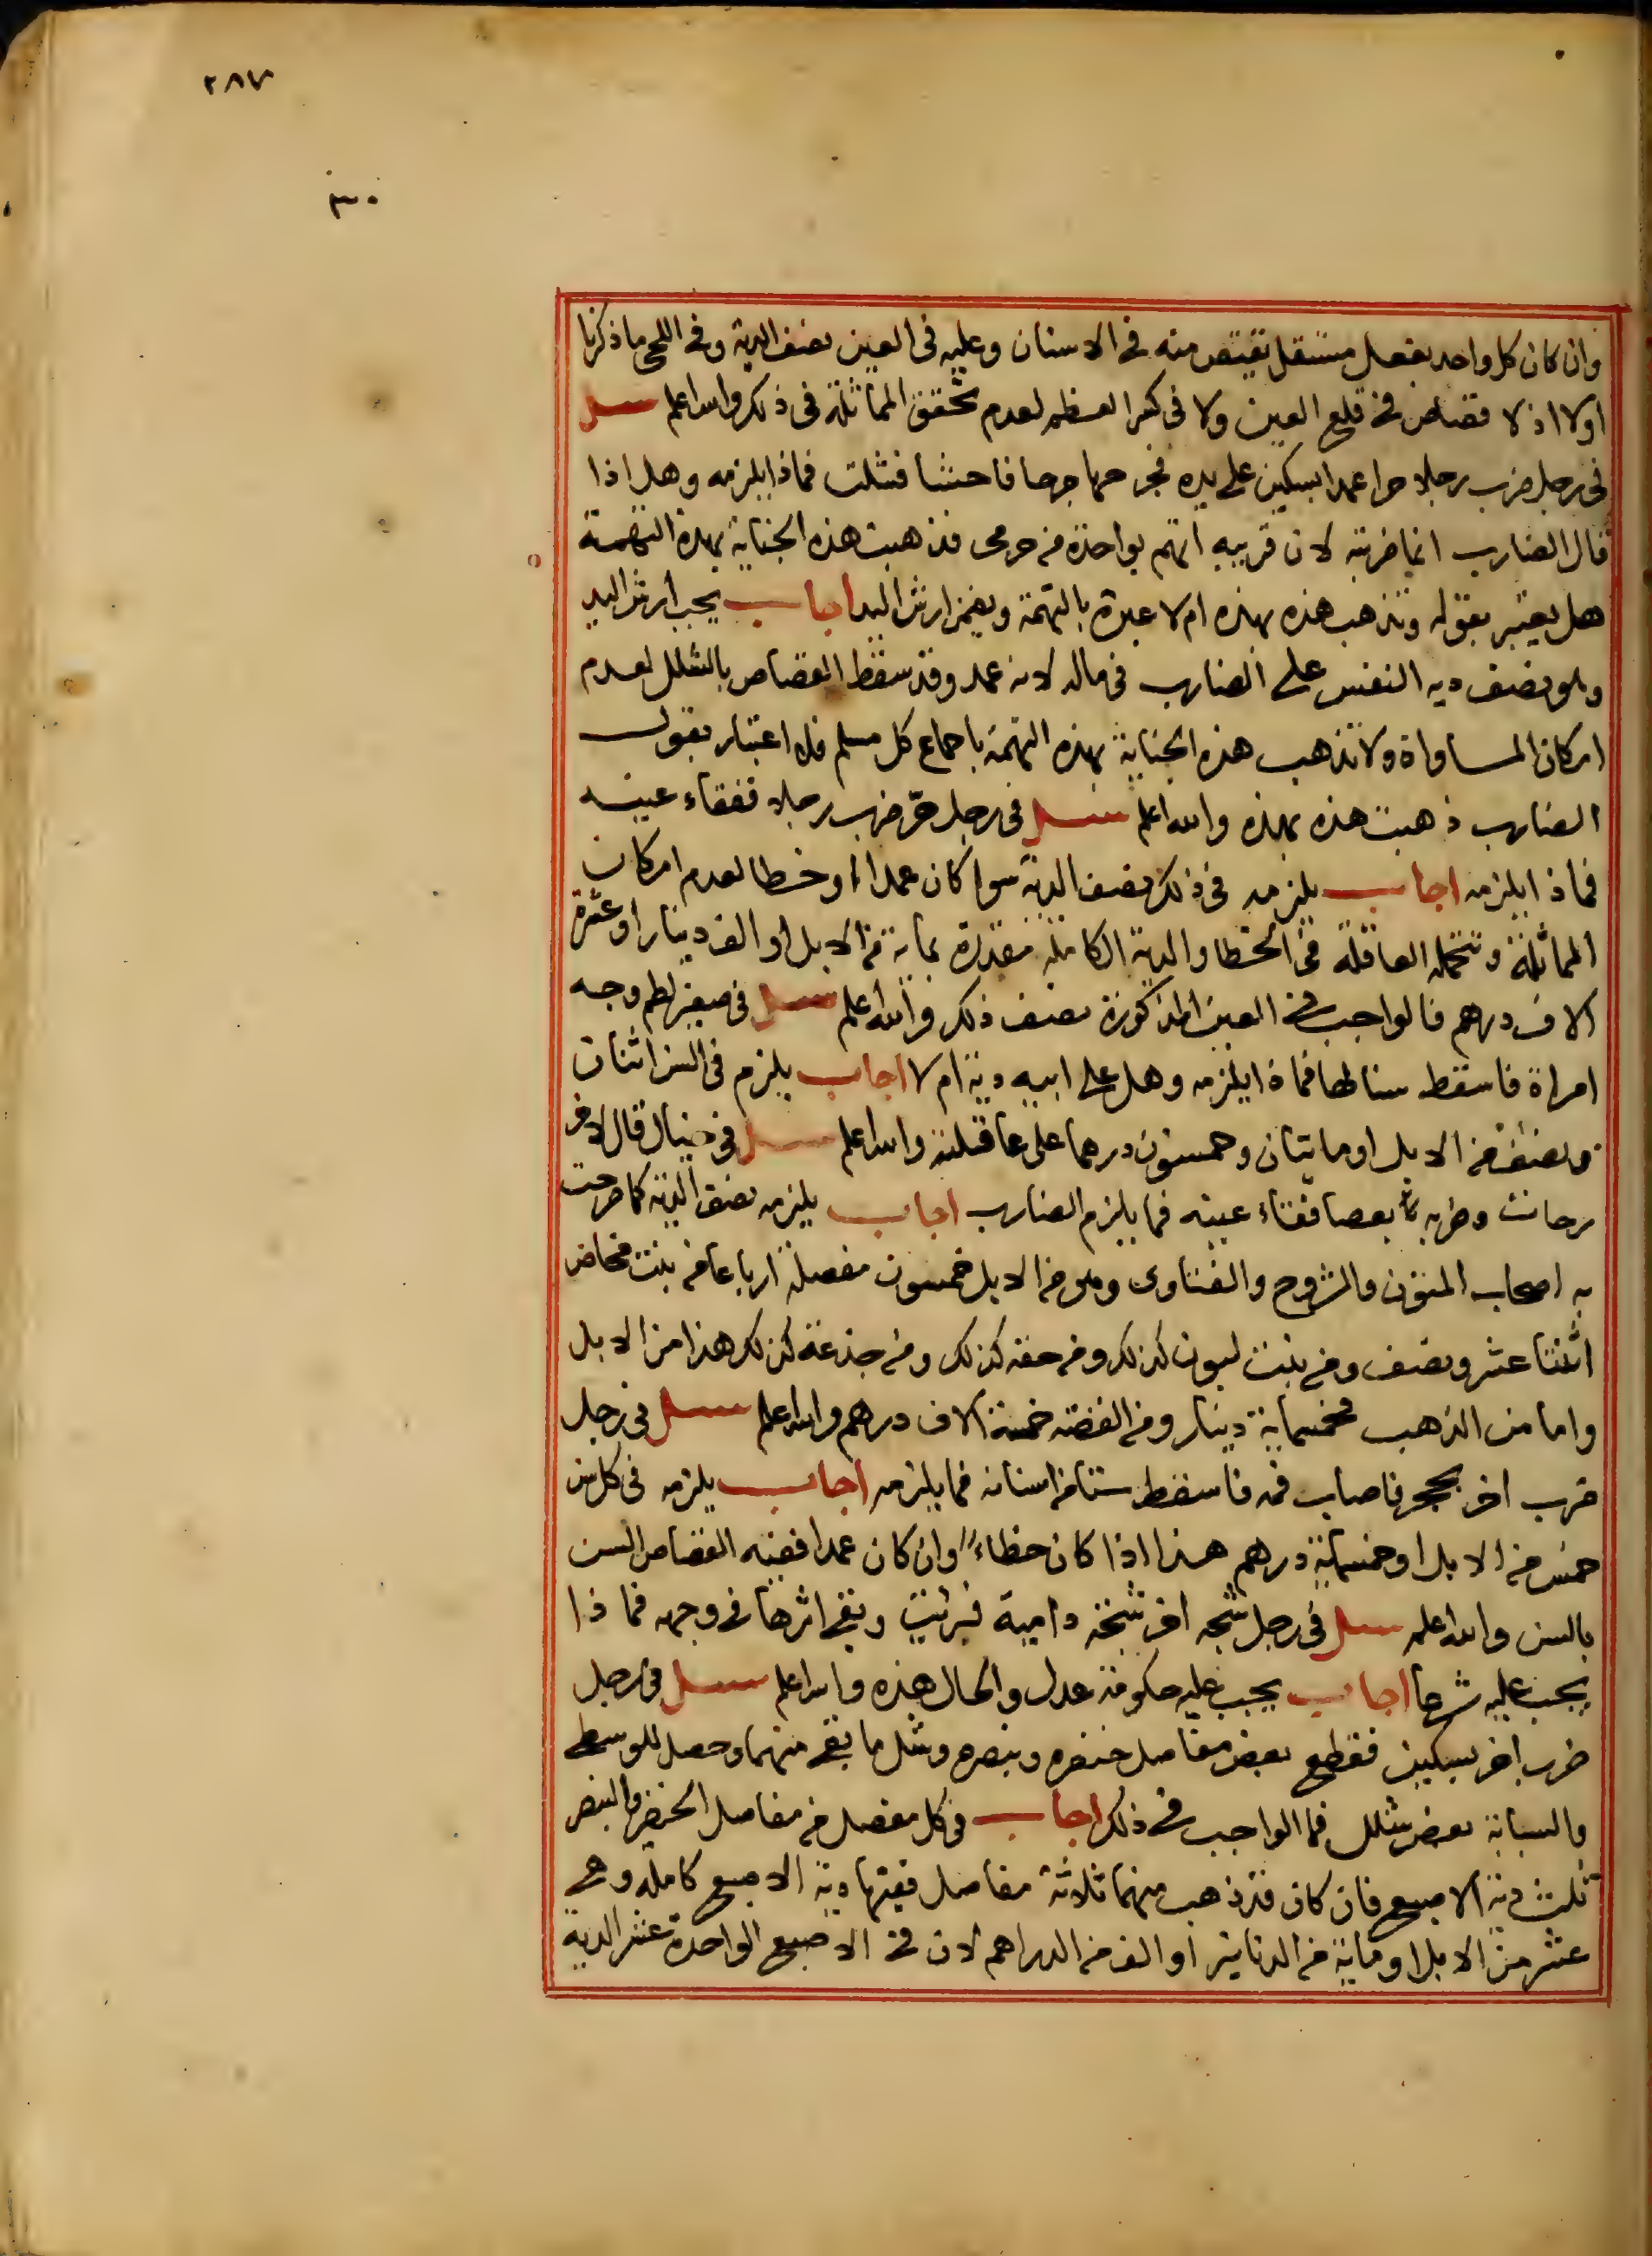 ٢٨٧
٣٠٠
وان كان كل واحد بفعل مستقل يقتص منه في الاسنان وعليه في العين نصف الدية وفي اللحى ما ذكرنا
اولا اذ لا قصاص في قلع العين ولا في كسر العظم لعدم تحقق المماثلة في ذلك والله اعلم سئل
في رجل ضرب رجلا حرا عمدا بسكين على يده فجرحها جرحا فاحشا فشلت فماذا يلزمه وهل اذا
قال الضارب انما ضربته لان قريبه اتهم بواحدة من حرمى فذهبت هذه الجناية بهذه التهمة
هل يعتبر بقوله وتذهب هذه بهذه ام لا عبرة بالتهمة ويضمن ارش اليد اجاب يجب ارش اليد
وهو نصف دية النفس على الضارب في ماله لانه عمد وقد سقط القصاص بالشلل لعدم
امكان المساواة ولا تذهب هذه الجناية بهذه التهمة باجماع كل مسلم فلا اعتبار بقول
الضارب ذهبت هذه بهذه والله اعلم سئل في رجل حرّ ضرب رجلا ففقاء عينه
فماذا يلزمه اجاب يلزمه في ذلك نصف الدية سوا كان عمدا او خطا لعدم امكان
المماثلة وتتحمله العاقلة في الخطا والدية الكاملة مقدرة بماية من الابل او الف دينار او عشرة
الاف درهم فالواجب في العين المذكورة نصف ذلك والله اعلم سئل في صغير لطم وجه
امراة فاسقط سنا لها فماذا يلزمه وهل على ابيه دية ام لا اجاب يلزم في السن اثنان
ونصف من الابل او مايتان وخمسون درهما على عاقلته والله اعلم سئل في خيال قال لاخر
رحانت وضربه بعصا فقاء عينه فما يلزم الضارب اجاب يلزمه نصف الدية كما صرحت
به اصحاب المتون والشروح والفتاوى وهو من الابل خمسون مفصلة ارباعا من بنت مخاض
اثنتا عشر ونصف ومن بنت لبون كذلك ومن حقه كذلك ومن جذعة كذلك هذا من الابل
واما من الذهب فخمسماية دينار ومن الفضة خمسة الاف درهم والله اعلم سئل في رجل
ضرب اخر بحجر فاصاب فمه فاسقط ستا من اسنانه فما يلزمه اجاب يلزمه في كل سن
خمس من الابل او خمسماية درهم هذا اذا كان خطاء وان كان عمدا ففيه القصاص السن
بالسن والله اعلم سئل في رجل شجه اخر شجة دامية فبرئت وبقى اثرها في وجهه فماذا
يجب عليه شرعا اجاب يجب عليه حكومة عدل والحال هذه والله اعلم سئل في رجل
ضرب اخر بسكين فقطع بعض مفاصل خنصره وبنصره وشل ما بقى منهما وحصل للوسطى
والسبابة بعض شلل فما الواجب في ذلك اجاب في كل مفصل من مفاصل الخنصر والبنصر
ثلث دية الاصبع فان كان قد ذهب منهما ثلاثة مفاصل ففيها دية الاصبع كاملة وهي
عشر من الابل او ماية من الدنانير او الف من الدراهم لان في الاصبع الواحدة عشر الدية